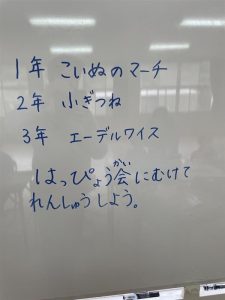 1年 こいぬのマーチ
2年 小ぎつね
3年 エーデルワイス
はっぴょう会にむけて
れんしゅうしよう。